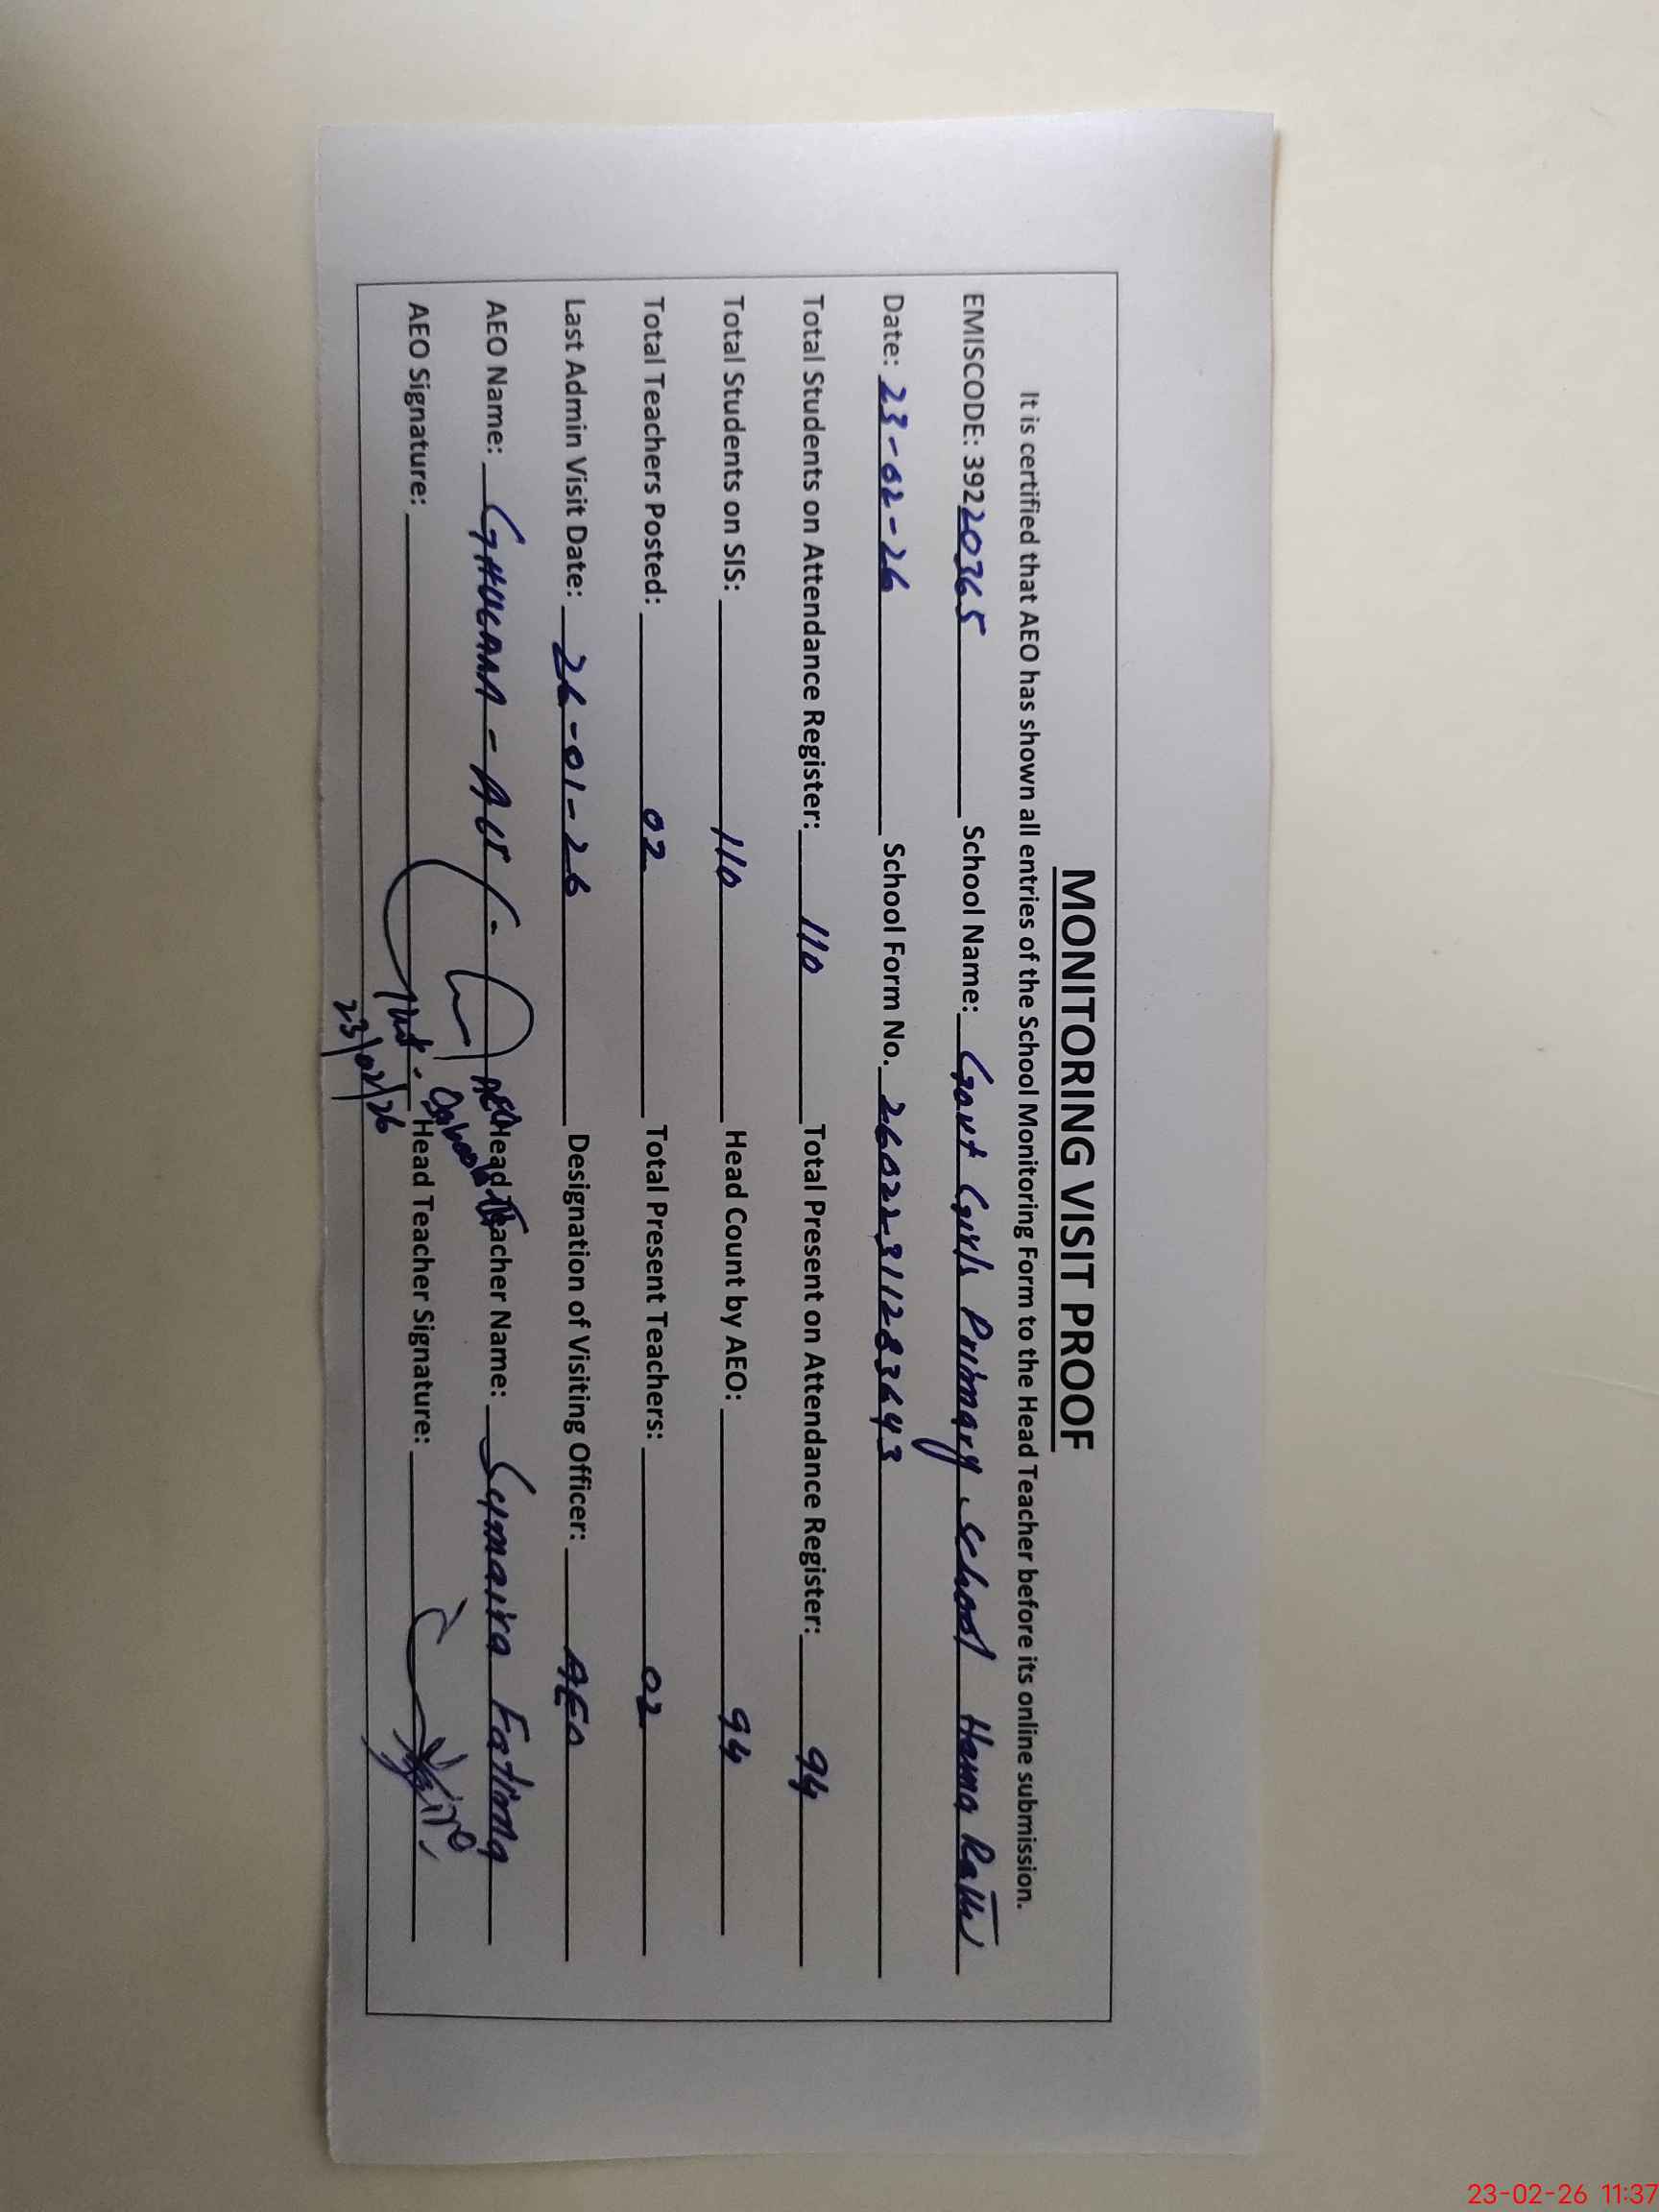 MONITORING VISIT PROOF
It is certified that AEO has shown all entries of the School Monitoring Form to the Head Teacher before its online submission.
EMISCODE: 39220365 School Name: Govt Girls Primary School Hama
Date: 23-02-26 School Form No. 26022311283643
Total Students on Attendance Register: 110 Total Present on Attendance Register: 94
Total Students on SIS: 110 Head Count by AEO: 94
Total Teachers Posted: 02 Total Present Teachers: 02
Last Admin Visit Date: 26-01-26 Designation of Visiting Officer: AEO
AEO Name: GHULAM-ALI AEO Head Teacher Name: Sumaira Fatima
AEO Signature: Head Teacher Signature:
23/02/26
23-02-26 11:37